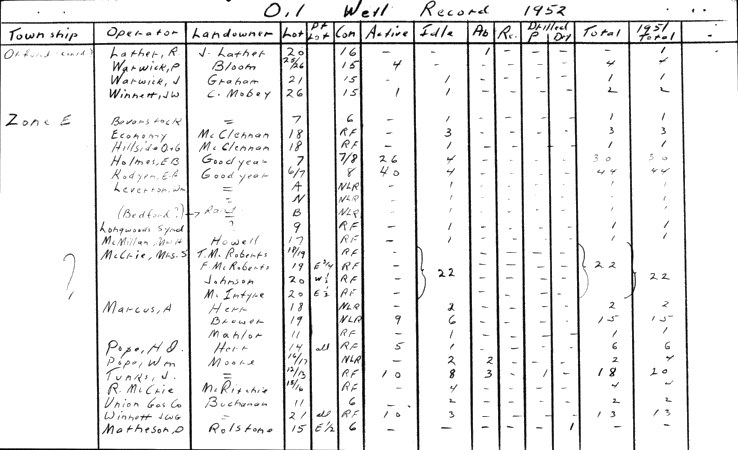 Oil Well Record 1952
Township Operator Landowner Lot Pt Lot Con Active Idle Ab Rc. Drilled P Dry Total 1951 Total
Orford (cont) Lather, R. J. Lather 20 16 - - 1 - - - - 1
Warwick, P Bloom 25/26 15 4 - - - - - 4 4
Warwick, J Graham 21 15 - 1 - - - - 1 1
Winnett, JW C. Mobey 26 15 1 1 - - - - 2 2
Zone E = 7 6 - 1 - - - - 1 1
Economy McClennan 18 RF - 3 - - - - 3 3
Hillside O+G McClennan 18 RF - 1 - - - - 1 1
Holmes, EB Goodyear 7 7/8 26 4 - - - - 30 30
Goodyear 6/7 8 40 4 - - - - 44 44
Leverton, Wm = A NLR - 1 - - - - 1 1
= N NLR - 1 - - - - 1 1
(Bedford?) → = B NLR - 1 - - - - 1 1
Longwoods Synd ? 9 RF - 1 - - - - 1 1
McMillan, Howell 17 RF - 1 - - - - 1 1
McCrie, Mrs. S T. McRoberts 18/19 RF - - - - -
F McRoberts 19 E 3/4 RF - - - - -
? Johnson 20 W 1/2 RF - 22 - - - - 22 22
McIntyre 20 E 1/2 RF - - - - -
Marcus, A Herr 18 NLR - 2 - - - - 2 2
Brower 19 NLR 9 6 - - - - 15 15
Mahlor 11 RF - 1 - - - - 1 1
Pope, H J. Herr 14 all RF 5 1 - - - - 6 6
Pope, Wm Moore 16/17 NLR - 2 2 - - - 2 4
Tunks, J. = 12/13 RF 10 8 3 - 1 - 18 20
R. McCrie McRitchie 15/16 RF - 4 - - - - 4 4
Union Gas Co Buchanan 11 6 - 2 - - - - 2 2
Winnett JWG = 21 all RF 10 3 - - - - 13 13
Matheson, D Rolstone 15 E 1/2 6 - - - - - 1 - -